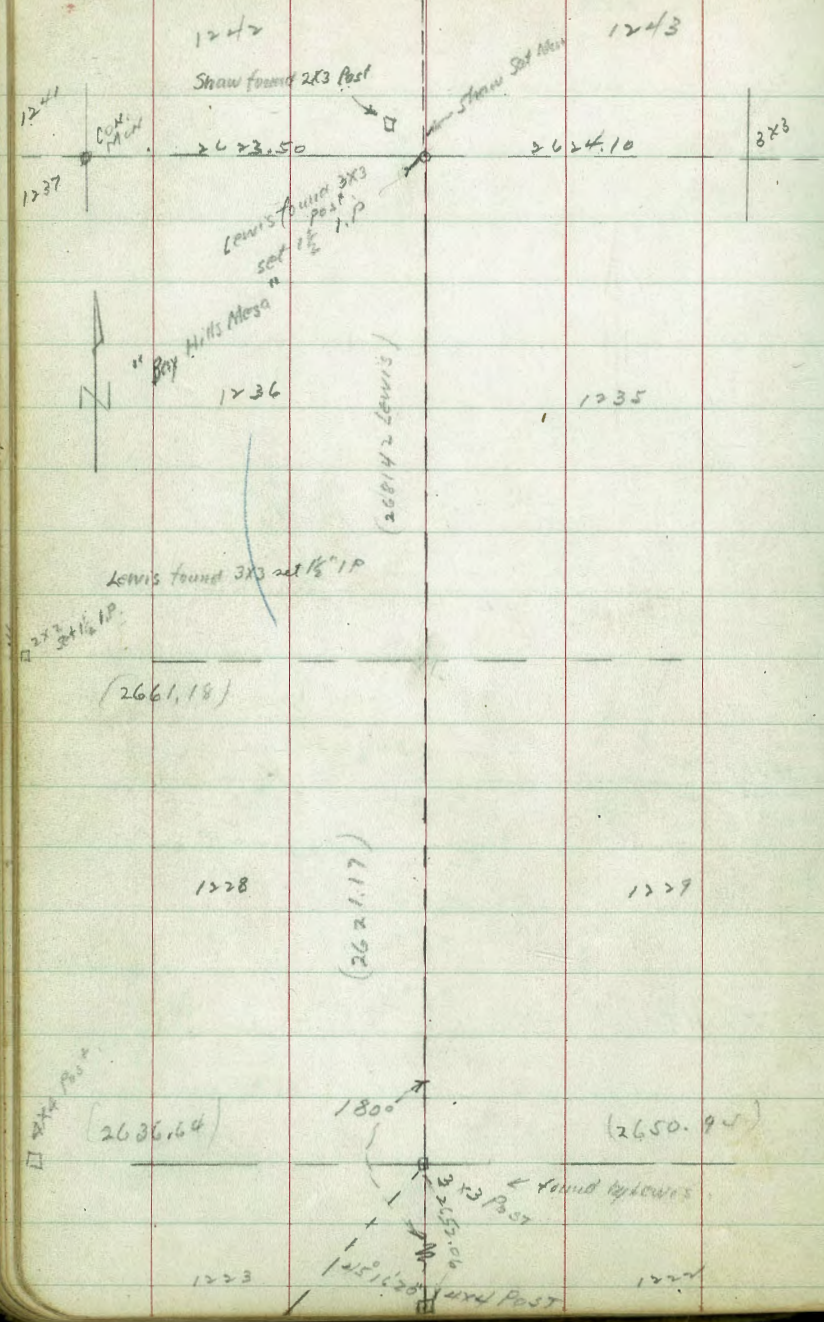 1242
1243
Shaw found 2x3 Post
Shaw Set
1241
CON.
MON
2623.50
2624.10
3x3
1237
Lewis found 3x3
post
set 1½ I.P
"Bay Hills Mesa"
N
1236
1235
(2681.42 Lewis)
Lewis found 3x3 set 1½" I P
2x2
set 1½ I.P.
(2661.18)
1228
(2621.17)
1229
180°
4x4 Post
(2636.64)
(2650.95)
3x3 Post
found by Lewis
2652.06
1223
45°16'25"
4x4 POST
1222